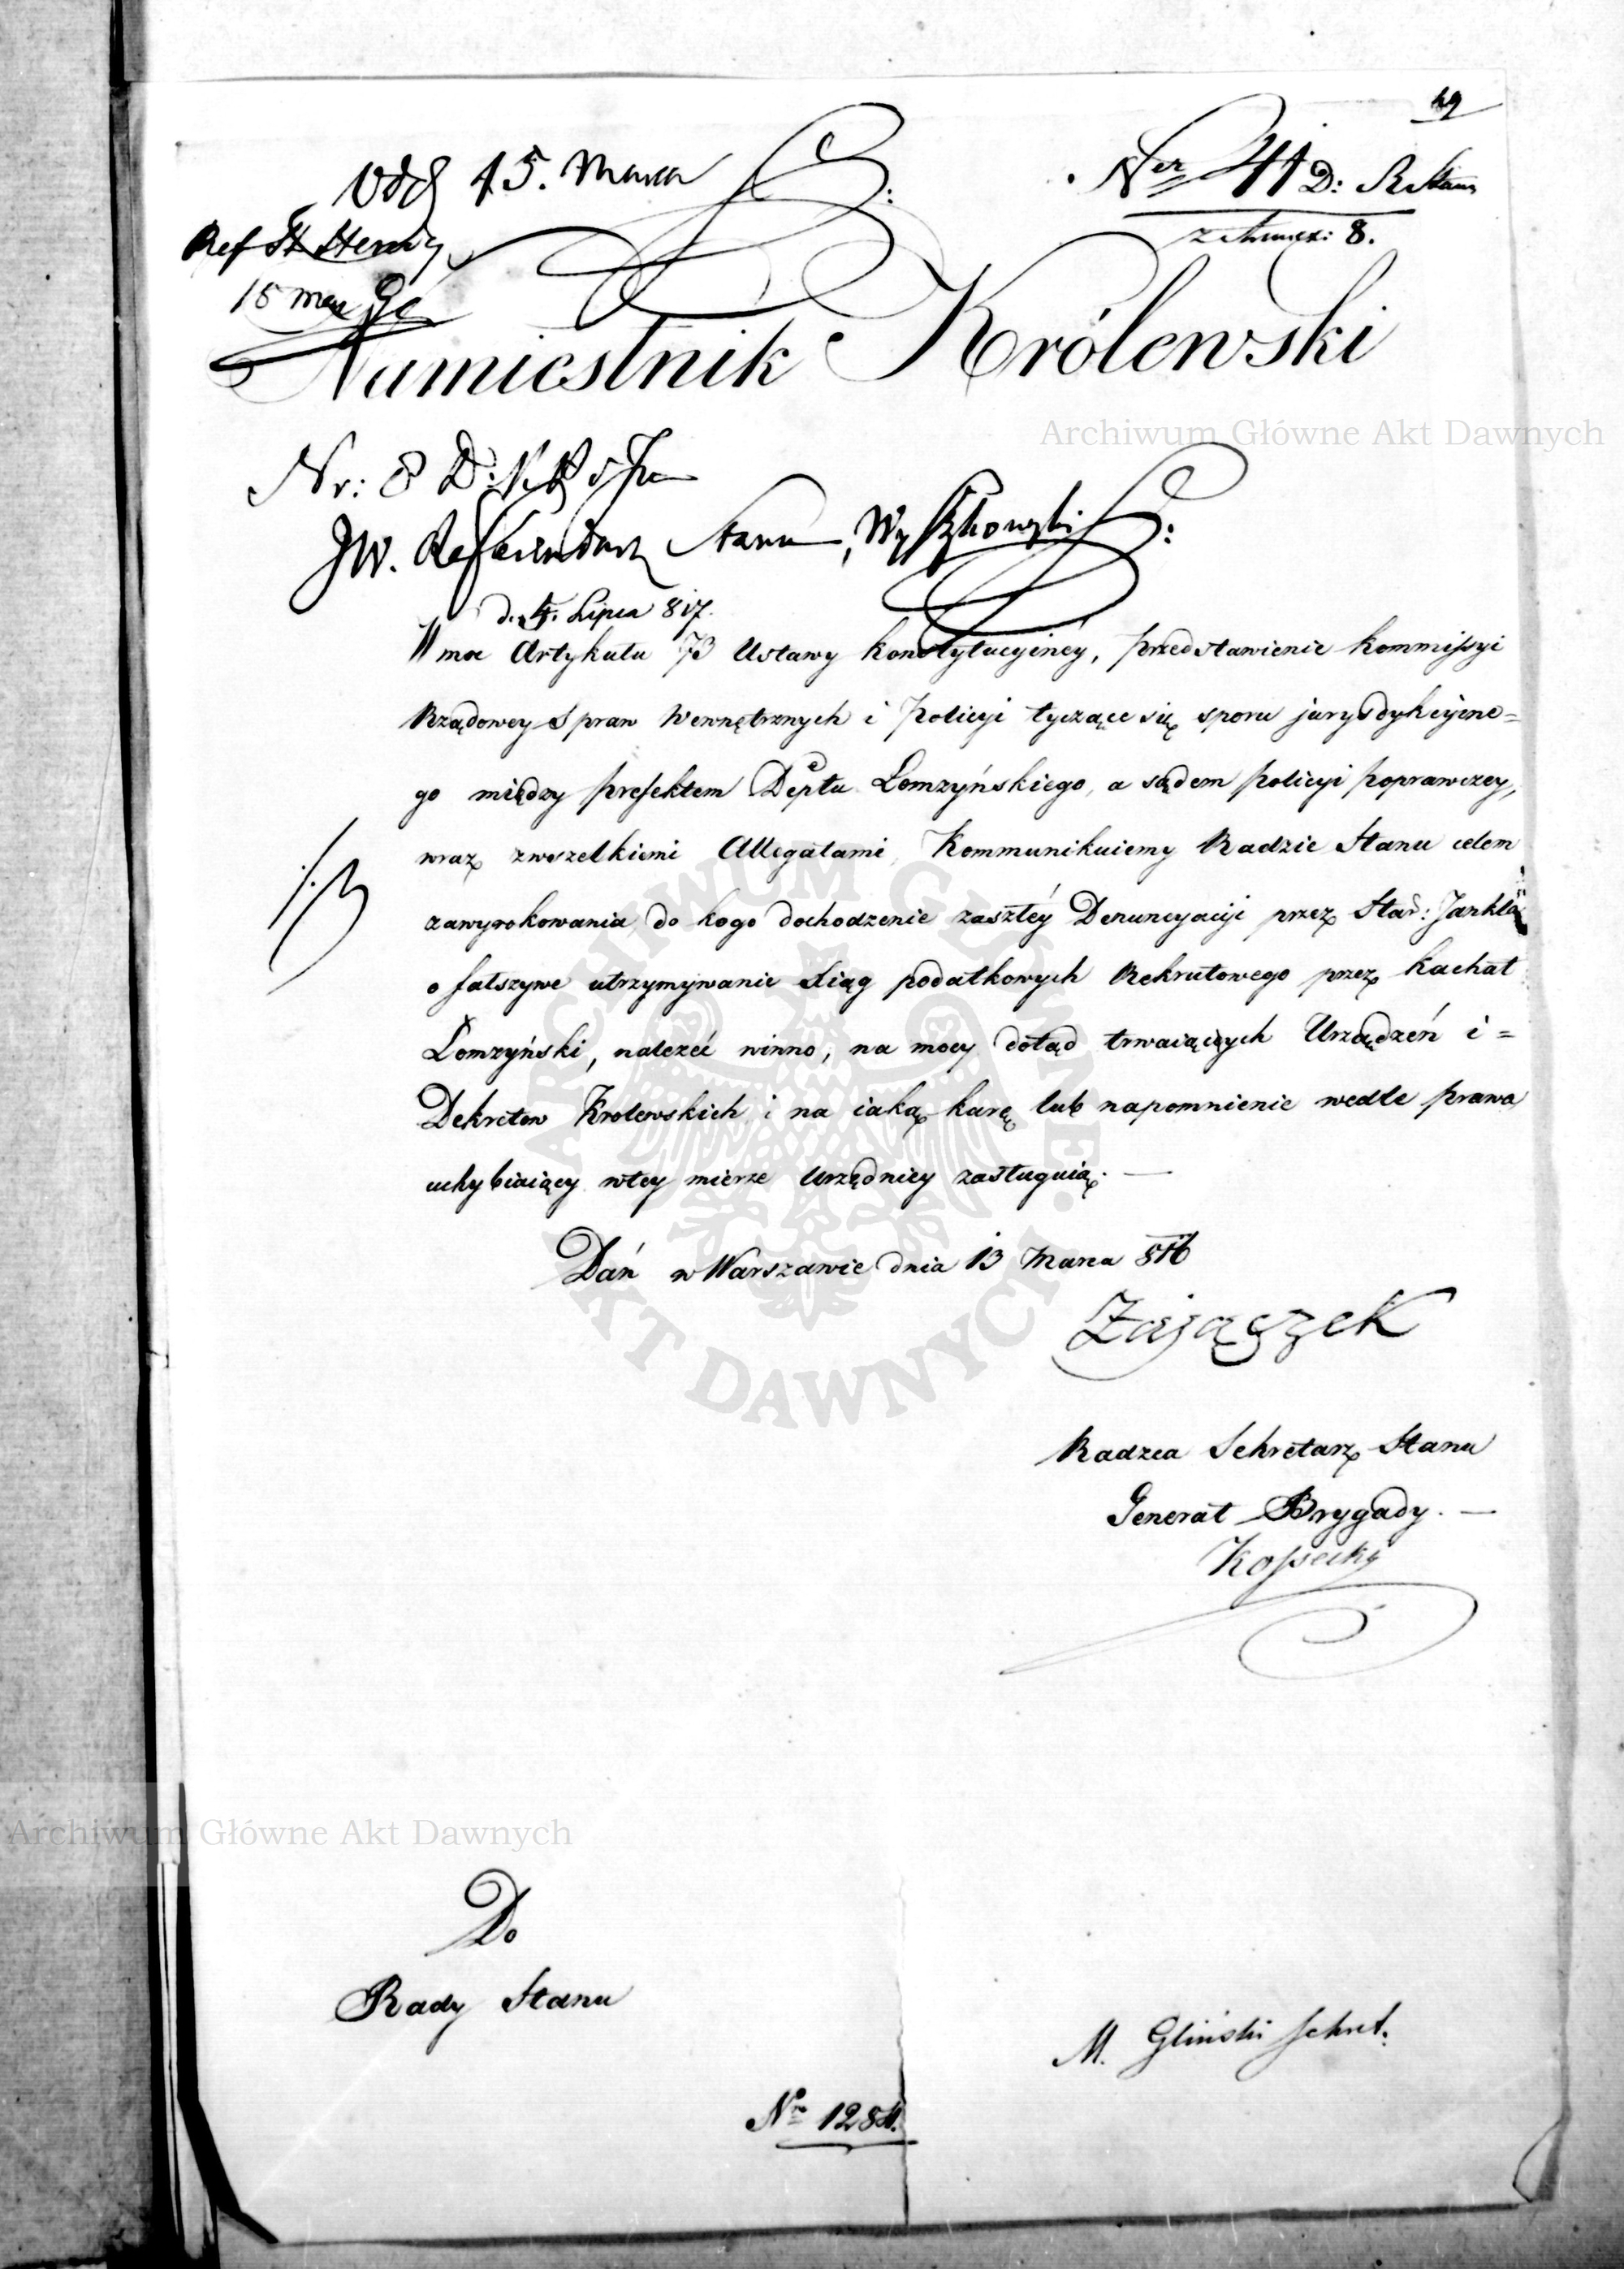 49
Odd 15. Marca
Ner 41 D: R. Stanu
z Numer: 8.
Ref St
15 Mar
Namiestnik Królewski
Archiwum Główne Akt Dawnych
Nr: 8 D:
JW. Referendarz Stanu, Wyszkowski
d. 4. Lipca 817.
W mc Artykułu 73 Ustawy Konstytucyinéy, przedstawienie Kommissyi
Rządowey Spraw Wewnętrznych i Policyi tyczące się sporu jurysdykcyjne=
go między prefektem Deptu Łomzyńskiego, a sądem policyi poprawczey,
wraz zwszelkiemi Allegatami, Kommunikuiemy Radzie Stanu celem
zawyrokowania, do kogo dochodzenie zaszłéy Denuncyacyi przez Star: Jankla
o fałszywe utrzymywanie Xiąg podatkowych Rekrutowego przez Kachał
Łomzyński, nalezéć winno, na mocy dotąd trwaiących Urządzeń i=
Dekretow Krolewskich i na iaką karę lub napomnienie wedle prawa
uchybiaiący wtey mierze Urzędnicy zasługuią. —
Dań w Warszawie dnia 13 Marca 816
Zajączek
Radzca Sekretarz Stanu
Generał Brygady. —
Kossecky
Archiwum Główne Akt Dawnych
Do
Rady Stanu
M. Gliński Sekret.
No 1284.
ARCHIWUM GŁÓWNE AKT DAWNYCH